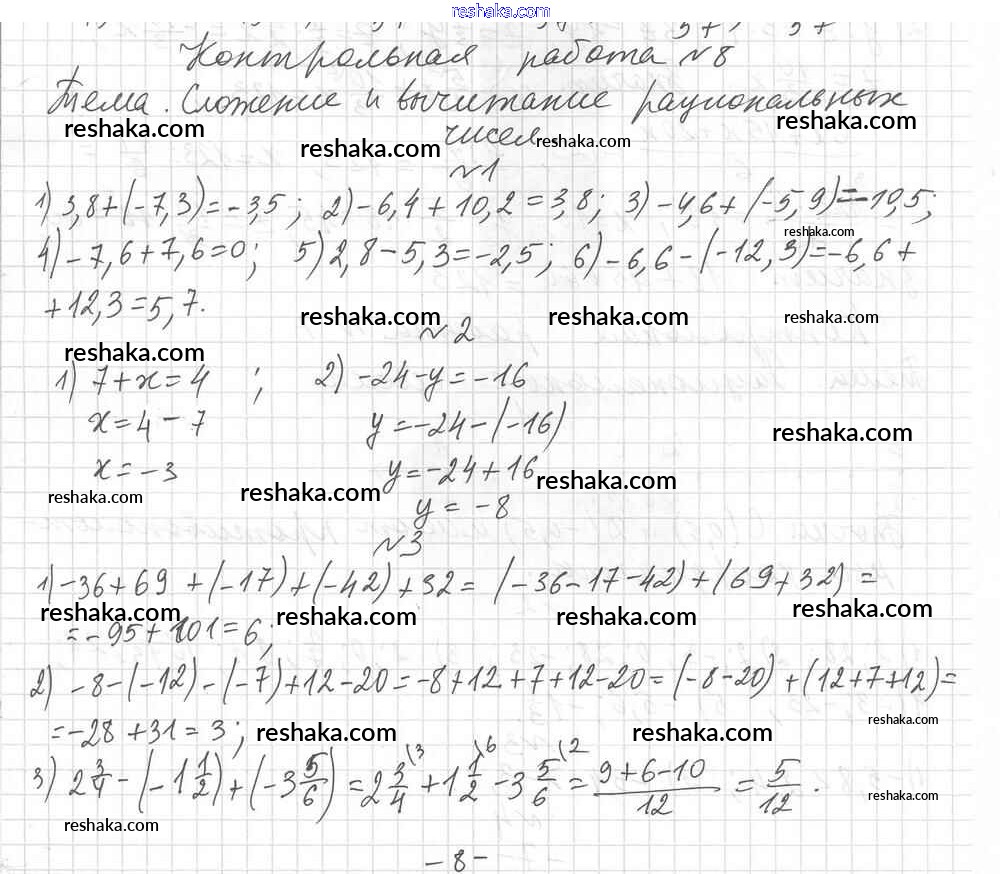 reshaka.com
Контрольная работа №8
Тема. Сложение и вычитание рациональных
reshaka.com reshaka.com
чисел
reshaka.com reshaka.com
№1
1) 3,8+(-7,3)=-3,5; 2) -6,4+10,2=3,8; 3) -4,6+(-5,9)=-10,5;
reshaka.com
4) -7,6+7,6=0; 5) 2,8-5,3=-2,5; 6) -6,6-(-12,3)=-6,6+
+12,3=5,7.
reshaka.com reshaka.com reshaka.com
№2
reshaka.com
1) 7+x=4 ; 2) -24-y=-16
x=4-7 y=-24-(-16)
reshaka.com
x=-3 y=-24+16
reshaka.com reshaka.com reshaka.com
y=-8
№3
1) -36+69+(-17)+(-42)+32=(-36-17-42)+(69+32)=
reshaka.com reshaka.com reshaka.com reshaka.com
=-95+101=6;
2) -8-(-12)-(-7)+12-20=-8+12+7+12-20=(-8-20)+(12+7+12)=
reshaka.com
=-28+31=3;
reshaka.com reshaka.com
3) 2 3/4-(-1 1/2)+(-3 5/6)=2 3/4\3+1 1/2\6-3 5/6\2=(9+6-10)/12=5/12.
reshaka.com reshaka.com
-8-